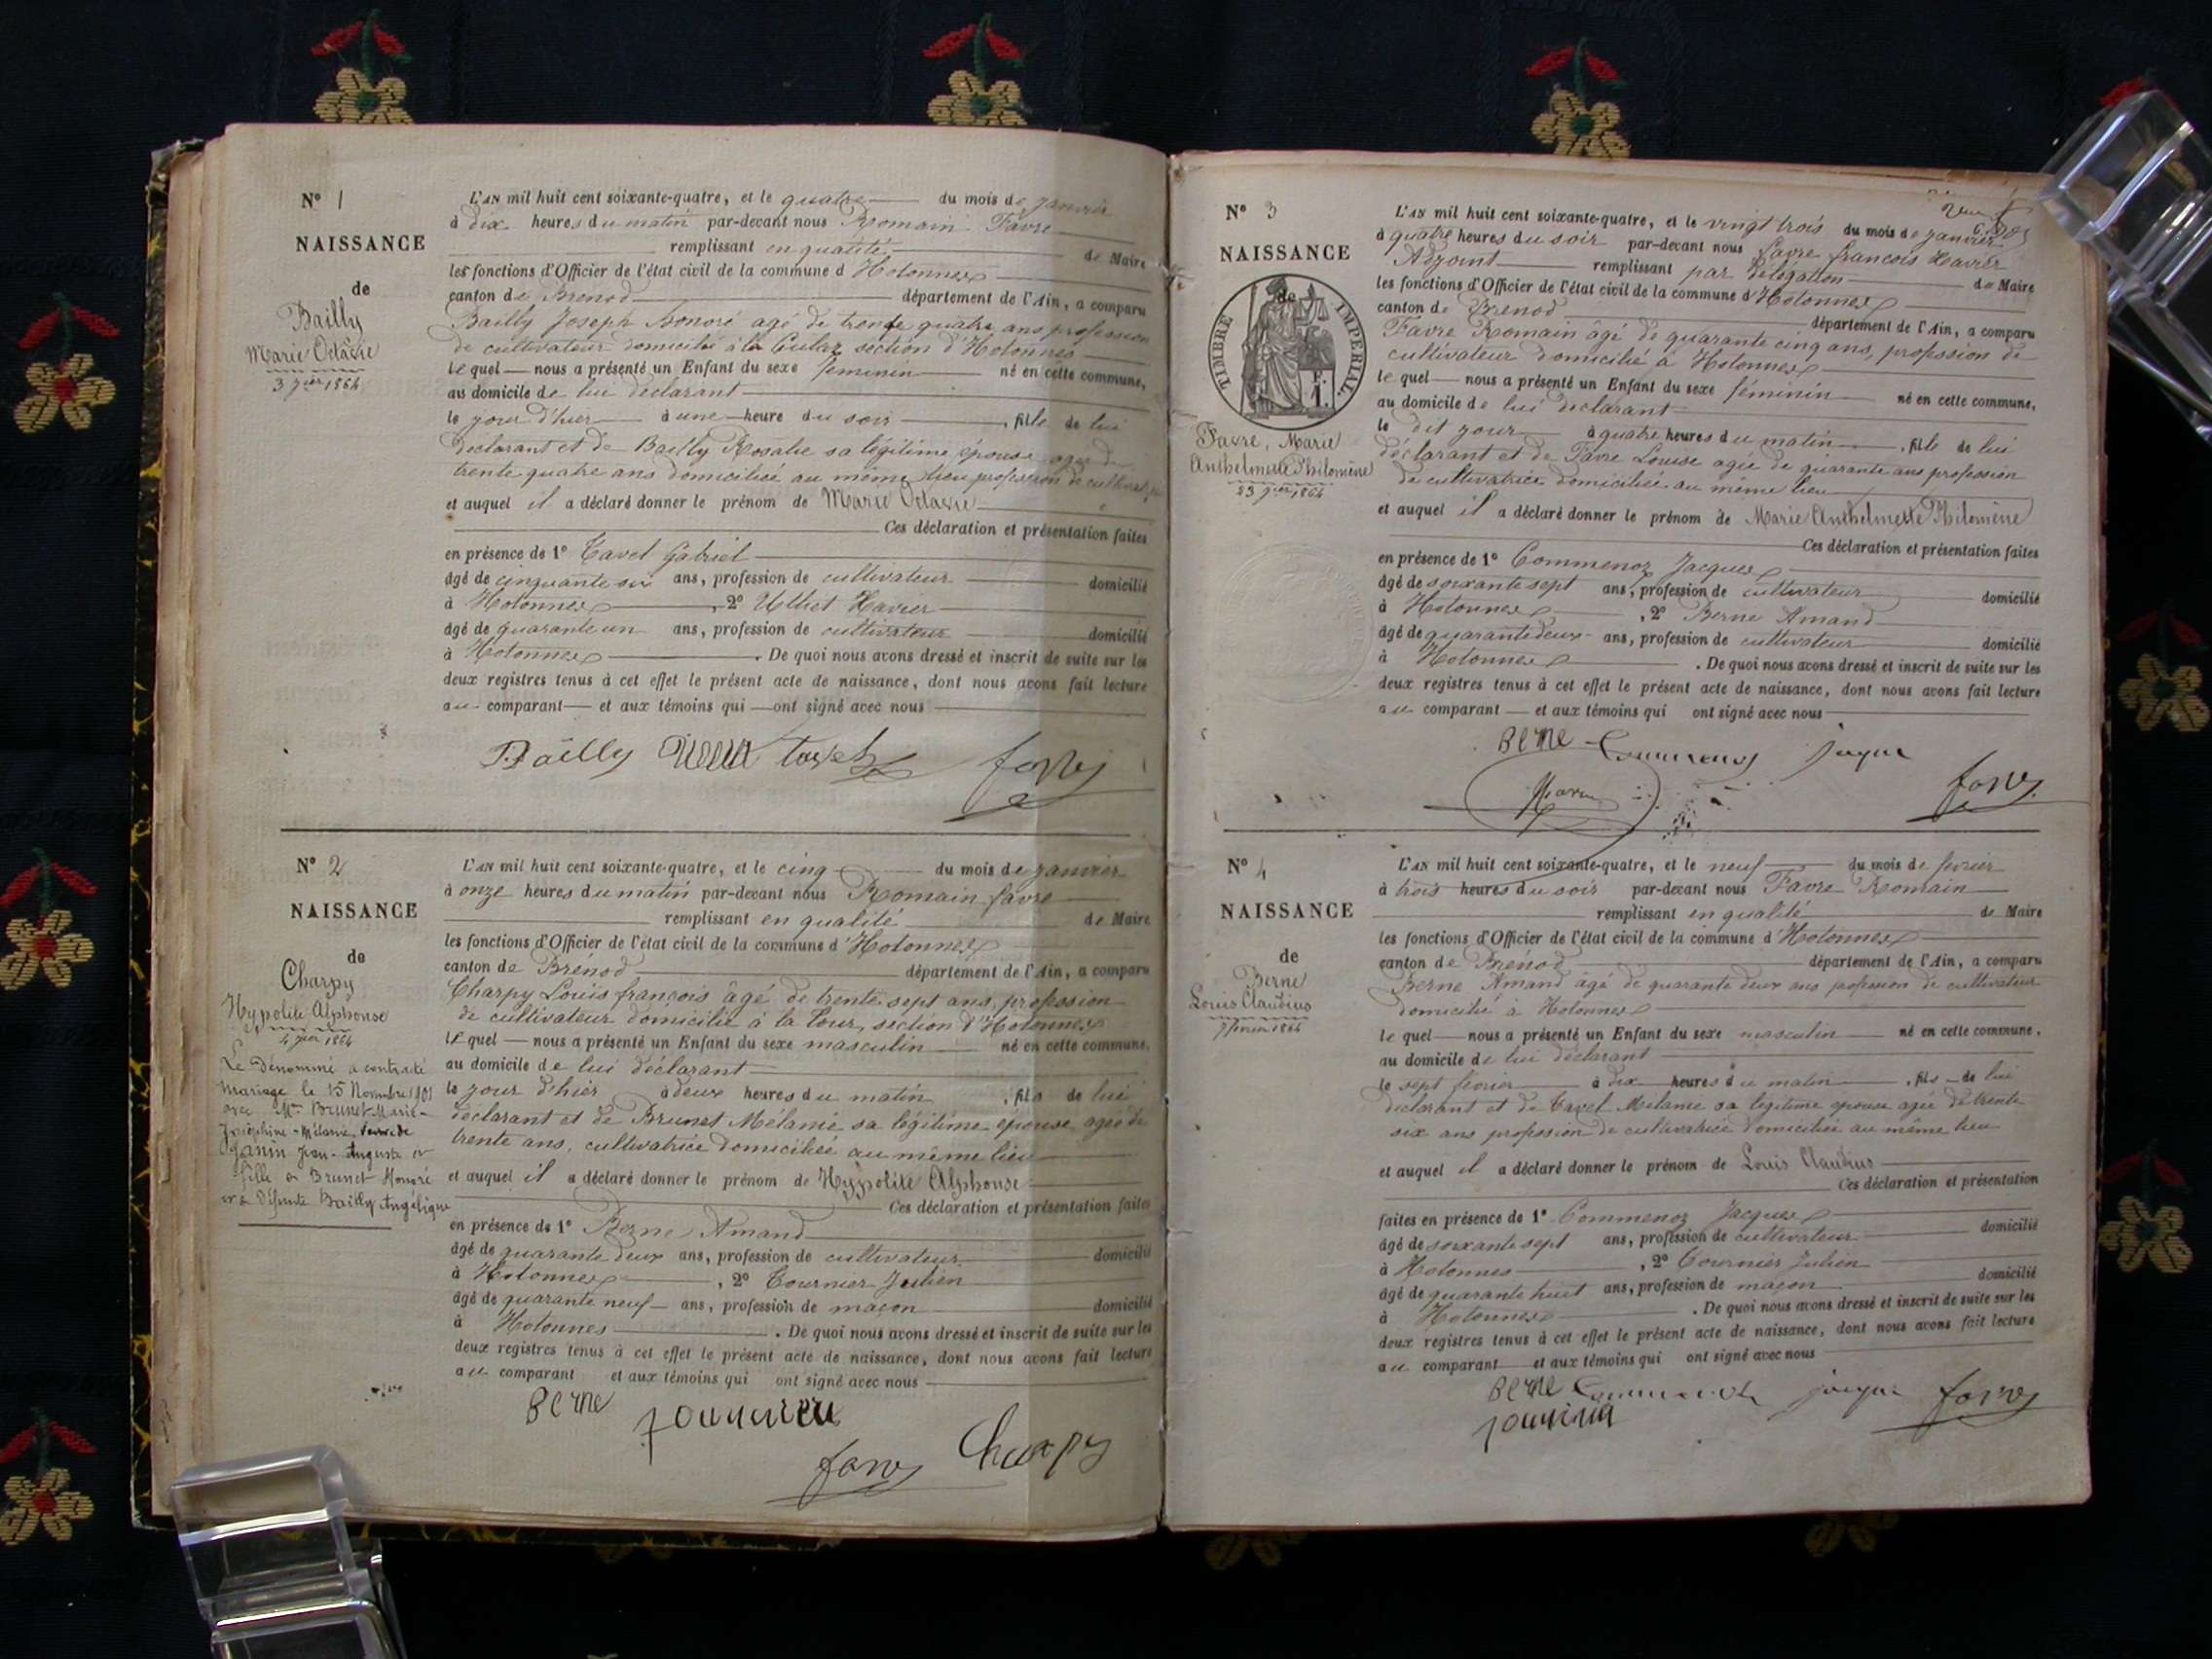 N° 1
NAISSANCE
de
Bailly
Marie Octavie
3 Jer 1864
L'AN mil huit cent soixante-quatre, et le quatre du mois de Janvier
à dix heures du matin par-devant nous Romain Favre
remplissant en qualité de Maire
les fonctions d'Officier de l'état civil de la commune d'Hotonnes
canton de Brénod département de l'Ain, a comparu
Bailly Joseph honoré agé de trente quatre ans profession
de cultivateur domicilié à la section d'Hotonnes
le quel nous a présenté un Enfant du sexe féminin né en cette commune,
au domicile de lui déclarant
le jour d'hier à une heure du soir, fille de lui
déclarant et de Bailly Rosalie sa légitime épouse agée de
trente quatre ans domiciliée au même lieu profession de
et auquel il a déclaré donner le prénom de Marie Octavie
Ces déclaration et présentation faites
en présence de 1° Tavel Gabriel
âgé de cinquante six ans, profession de cultivateur domicilié
à Hotonnes, 2° Xavier
âgé de quarante un ans, profession de cultivateur domicilié
à Hotonnes. De quoi nous avons dressé et inscrit de suite sur les
deux registres tenus à cet effet le présent acte de naissance, dont nous avons fait lecture
au comparant et aux témoins qui ont signé avec nous
Bailly favre
N° 2
NAISSANCE
de
Charpy
Hypolite Alphonse
4 Jer 1864
Le dénommé a contracté
mariage le 15 Novembre 1901
avec Me Brunet Marie-
Joséphine-Mélanie, veuve de
Jean-Auguste et
fille de Brunet Honoré
et de défunte Bailly Angélique
L'AN mil huit cent soixante-quatre, et le cinq du mois de Janvier
à onze heures du matin par-devant nous Romain favre
remplissant en qualité de Maire
les fonctions d'Officier de l'état civil de la commune d'Hotonnes
canton de Brénod département de l'Ain, a comparu
Charpy Louis françois âgé de trente sept ans, profession
de cultivateur domicilié à la Cour, section d'Hotonnes
le quel nous a présenté un Enfant du sexe masculin né en cette commune,
au domicile de lui déclarant
le jour d'hier à deux heures du matin, fils de lui
déclarant et de Brunet Mélanie sa légitime épouse agée de
trente ans, cultivatrice domiciliée au même lieu
et auquel il a déclaré donner le prénom de Hypolite Alphonse
Ces déclaration et présentation faites
en présence de 1° Berne Amand
âgé de quarante deux ans, profession de cultivateur domicilié
à Hotonnes, 2° Tournier Julien
âgé de quarante neuf ans, profession de maçon domicilié
à Hotonnes. De quoi nous avons dressé et inscrit de suite sur les
deux registres tenus à cet effet le présent acte de naissance, dont nous avons fait lecture
au comparant et aux témoins qui ont signé avec nous
Berne
favre Charpy
N° 3
NAISSANCE
de
TIMBRE IMPERIAL.
F.
1.
Favre, Marie
Anthelmette Philomène
23 Jer 1864
L'AN mil huit cent soixante-quatre, et le vingt trois du mois de Janvier
à quatre heures du soir par-devant nous favre françois Xavier
Adjoint remplissant par délégation de Maire
les fonctions d'Officier de l'état civil de la commune d'Hotonnes
canton de Brenod département de l'Ain, a comparu
Favre Romain âgé de quarante cinq ans, profession de
cultivateur domicilié à Hotonnes
le quel nous a présenté un Enfant du sexe féminin né en cette commune,
au domicile de lui déclarant
le dit jour à quatre heures du matin, fille de lui
déclarant et de Favre Louise agée de quarante ans profession
de cultivatrice domiciliée au même lieu
et auquel il a déclaré donner le prénom de Marie Anthelmette Philomène
Ces déclaration et présentation faites
en présence de 1° Commenoz Jacques
âgé de soixante sept ans, profession de cultivateur domicilié
à Hotonnes, 2° Berne Amand
âgé de quarante deux ans, profession de cultivateur domicilié
à Hotonnes. De quoi nous avons dressé et inscrit de suite sur les
deux registres tenus à cet effet le présent acte de naissance, dont nous avons fait lecture
au comparant et aux témoins qui ont signé avec nous
Berne
favre
N° 4
NAISSANCE
de
Berne
Louis Claudius
7 fevrier 1864
L'AN mil huit cent soixante-quatre, et le neuf du mois de fevrier
à trois heures du soir par-devant nous Favre Romain
remplissant en qualité de Maire
les fonctions d'Officier de l'état civil de la commune d'Hotonnes
canton de Brénod département de l'Ain, a comparu
Berne Amand âgé de quarante deux ans profession de cultivateur
domicilié à Hotonnes
le quel nous a présenté un Enfant du sexe masculin né en cette commune,
au domicile de lui déclarant
le sept février à dix heures du matin, fils de lui
declarant et de Tavel Mélanie sa légitime épouse agée de trente
six ans profession de cultivatrice domiciliée au même lieu
et auquel il a déclaré donner le prénom de Louis Claudius
Ces déclaration et présentation
faites en présence de 1° Commenoz Jacques
âgé de soixante sept ans, profession de cultivateur domicilié
à Hotonnes, 2° Tournier Julien
âgé de quarante huit ans, profession de maçon domicilié
à Hotonnes. De quoi nous avons dressé et inscrit de suite sur les
deux registres tenus à cet effet le présent acte de naissance, dont nous avons fait lecture
au comparant et aux témoins qui ont signé avec nous
Berne favre